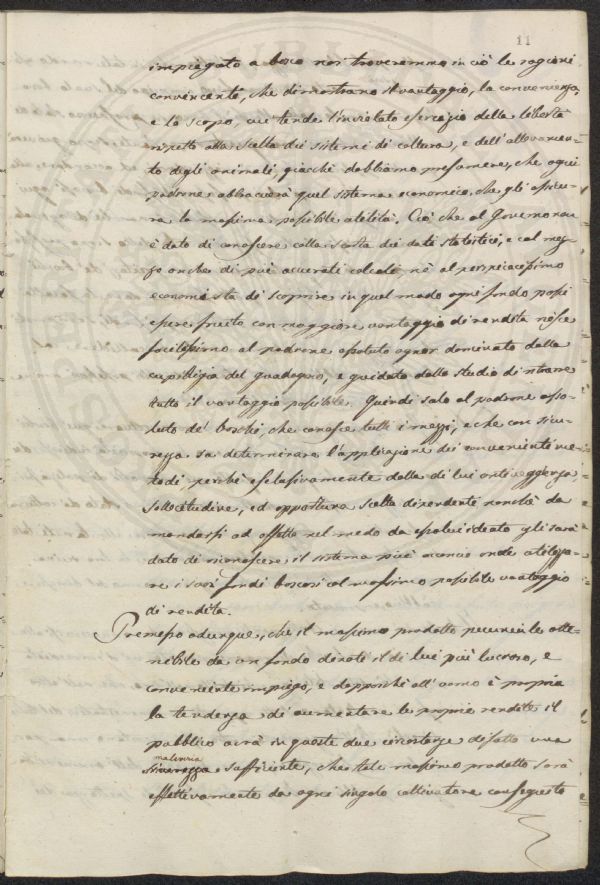 11
impiegato a bosco noi troveremmo in ciò le ragioni
convincenti, che dimostrano il vantaggio, la convenienza,
e lo scopo, cui tende l'inviolato esercizio della libertà
rispetto alla scelta dei sistemi di coltura, e dell'allevamen-
to degli animali, giacchè dobbiamo presumere, che ogni
padrone abbraccierà quel sistema economico, che gli assicu-
ra la massima possibile utilità. Ciò che al Governo non
è dato di conoscere colla scorta dei dati statistici, e col mez-
zo anche di più accurati calcoli nè al perspicacissimo
economista di scoprire in qual modo ogni fondo possi
essere fruito con maggiore vantaggio di rendita riesce
facilissimo al padrone assoluto ognor dominato dalla
cupidigia del guadagno, e guidato dallo studio di ritrarre
tutto il vantaggio possibile. Quindi solo al padrone asso-
luto de' boschi, che conosce tutti i mezzi, e che con sicu-
rezza sa determinare l'applicazione dei convenienti me-
todi perchè esclusivamente dalla di lui antiveggenza
sollecitudine, ed opportuna scelta dipendenti nonchè da
mandarsi ad effetto nel modo da esso lui ideato gli sarà
dato di riconoscere il sistema più acconcio onde utilizza-
re i suoi fondi boscosi col massimo possibile vantaggio
di rendita.
Premesso adunque, che il massimo prodotto pecuniale otte-
nibile da un fondo dinoti il di lui più lucroso, e
conveniente impiego, e dapposichè all'uomo è propria
la tendenza di aumentare le proprie rendite il
pubblico avrà in queste due circostanze di fatto una
sicurezza sufficiente, che tale massimo prodotto sarà
effettivamente da ogni singolo coltivatore conseguito